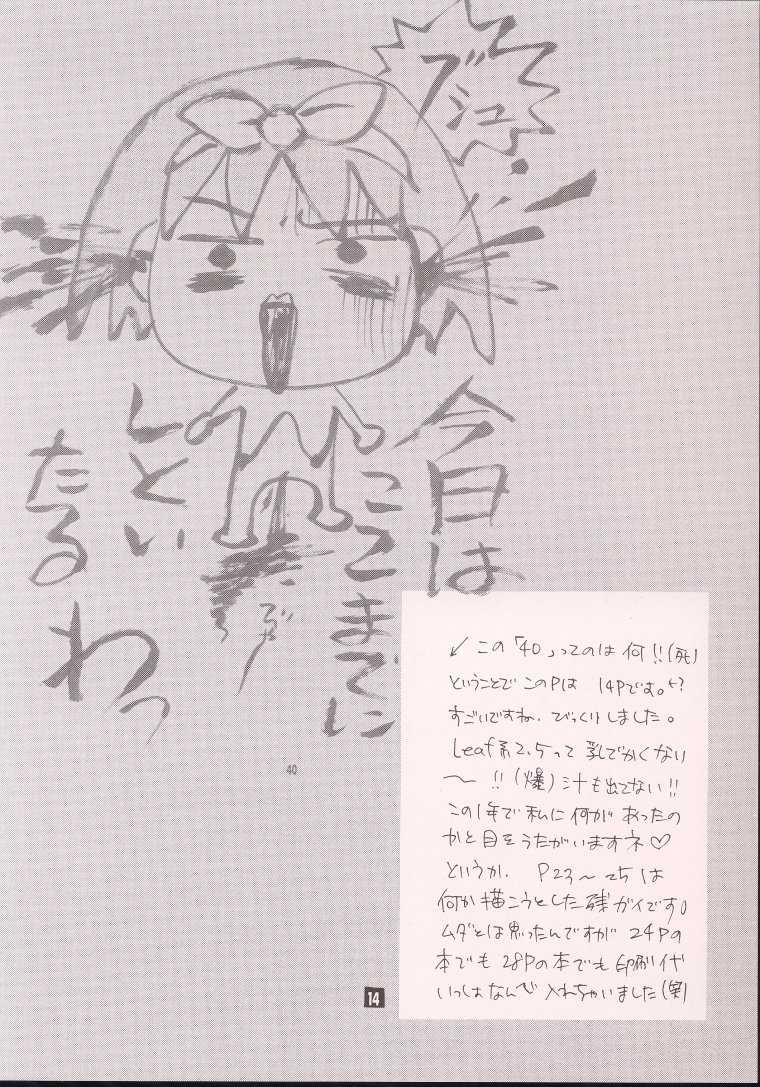 ブシュ
今日は
ここまでに
しとい
たるわっ
40
↙この「40」ってのは何!!(死)
ということでこのPは 14Pです。
すごいですね、びっくりしました。
Leaf系2.5って 乳でかくない
〜!!(爆)汁も出てない!!
この1年で私に何があったの
かと目をうたがいますネ♡
というか、P23〜25は
何か描こうとした残ガイです。
ムダとは思ったんですが 24Pの
本でも 28Pの本でも 印刷代
いっしょなんで 入れちゃいました(笑)
14